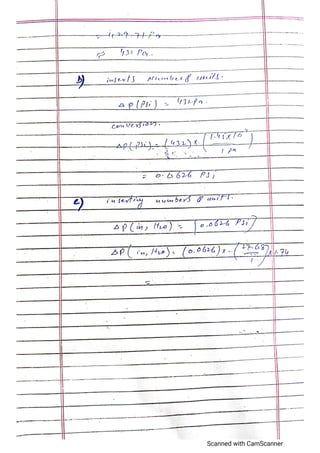 = 429.71 Pa
⇒ 432 Pa.
b) inserts Number of units.
Δp (Psi) = 432 Pa.
conversion.
Δp (Psi) = (432) x ( 1.45x10 / 1 Pa )
= 0.0626 Psi
c) inserting numbers of units.
Δp (in, H20) = [0.0626 Psi]
Δp (in, H20) = (0.0626) x ( 27.68 / 1 ) = 1.74
=
Scanned with CamScanner